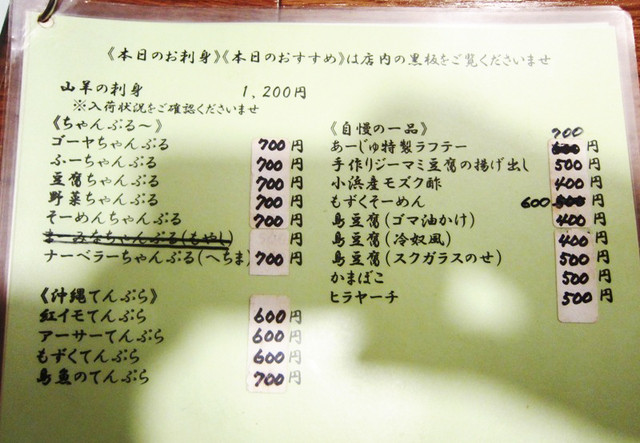 《本日のお刺身》《本日のおすすめ》は店内の黒板をご覧くださいませ
山羊の刺身 1,200円
※入荷状況をご確認くださいませ
《ちゃんぷる～》
ゴーヤちゃんぷる 700円
ふーちゃんぷる 700円
豆腐ちゃんぷる 700円
野菜ちゃんぷる 700円
そーめんちゃんぷる 700円
まーみなちゃんぷる(もやし) 円
ナーベラーちゃんぷる(へちま) 700円
《沖縄てんぷら》
紅イモてんぷら 600円
アーサーてんぷら 600円
もずくてんぷら 600円
島魚のてんぷら 700円
《自慢の一品》
あーじゅ特製ラフテー 700円
手作りジーマミ豆腐の揚げ出し 500円
小浜産モズク酢 400円
もずくそーめん 600円
島豆腐(ゴマ油かけ) 400円
島豆腐(冷奴風) 400円
島豆腐(スクガラスのせ) 500円
かまぼこ 500円
ヒラヤーチ 500円